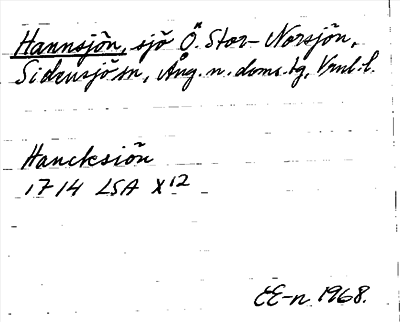 Hannsjön, sjö Ö. Stor-Norsjön,
Sidensjö sn, Ång. n. doms.tg, Vrnl. l.
Hancksiön
1714 LSA X12
EE-n 1968.